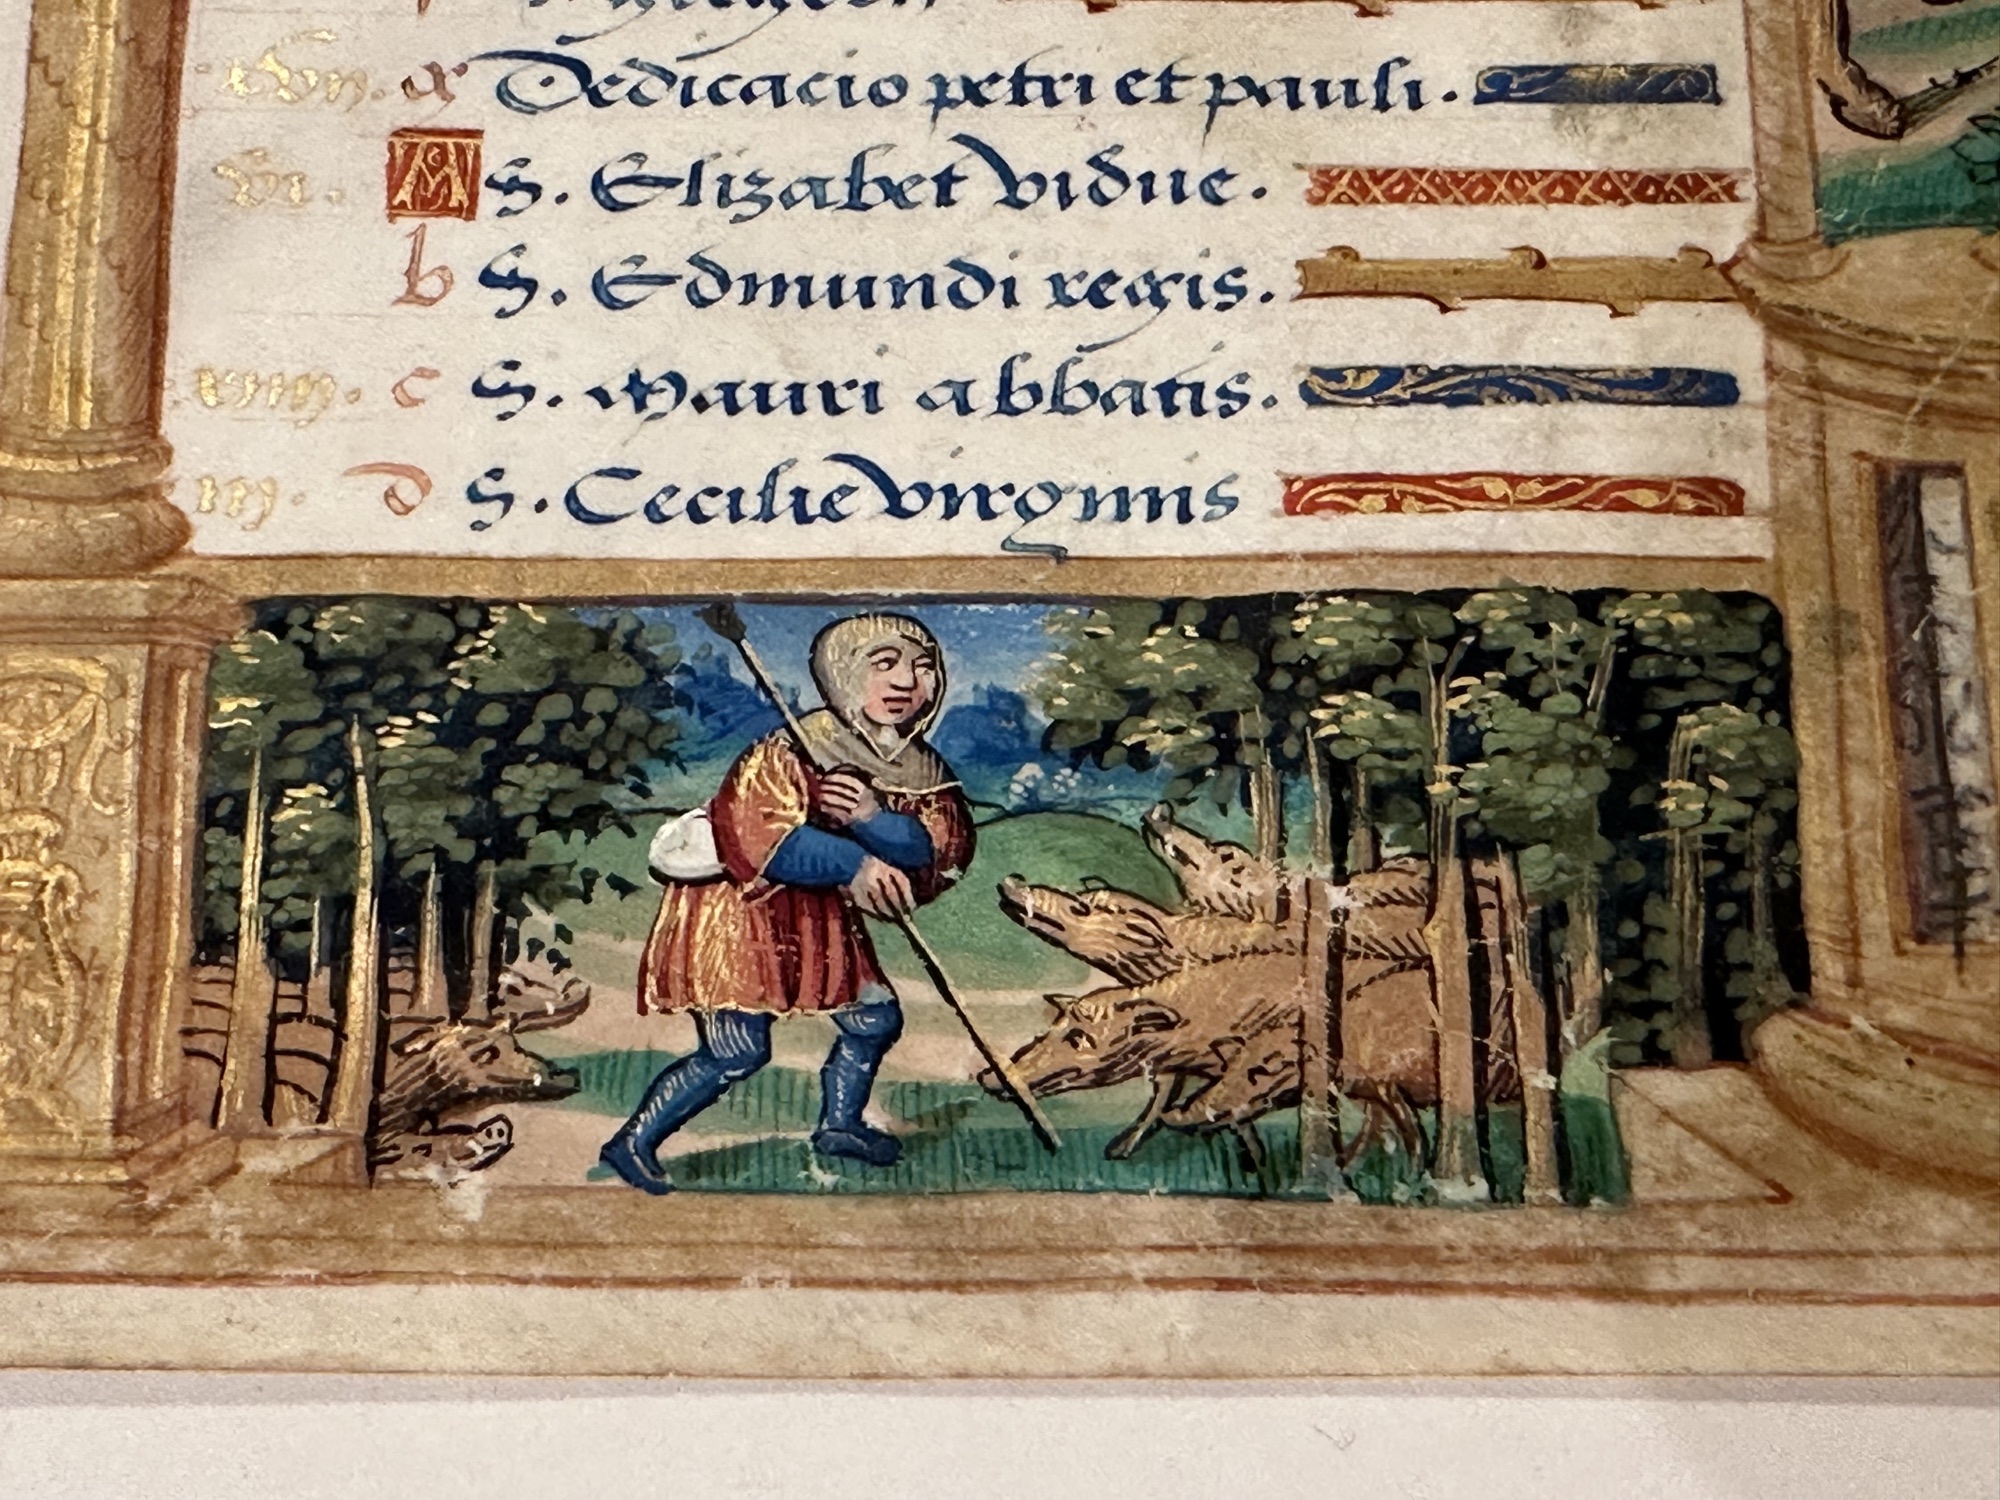 xvii. g Dedicacio petri et pauli.
vi. A S. Elizabet vidue.
b S. Edmundi regis.
xiiii. c S. Mauri abbatis.
iii. d S. Cecilie virginis